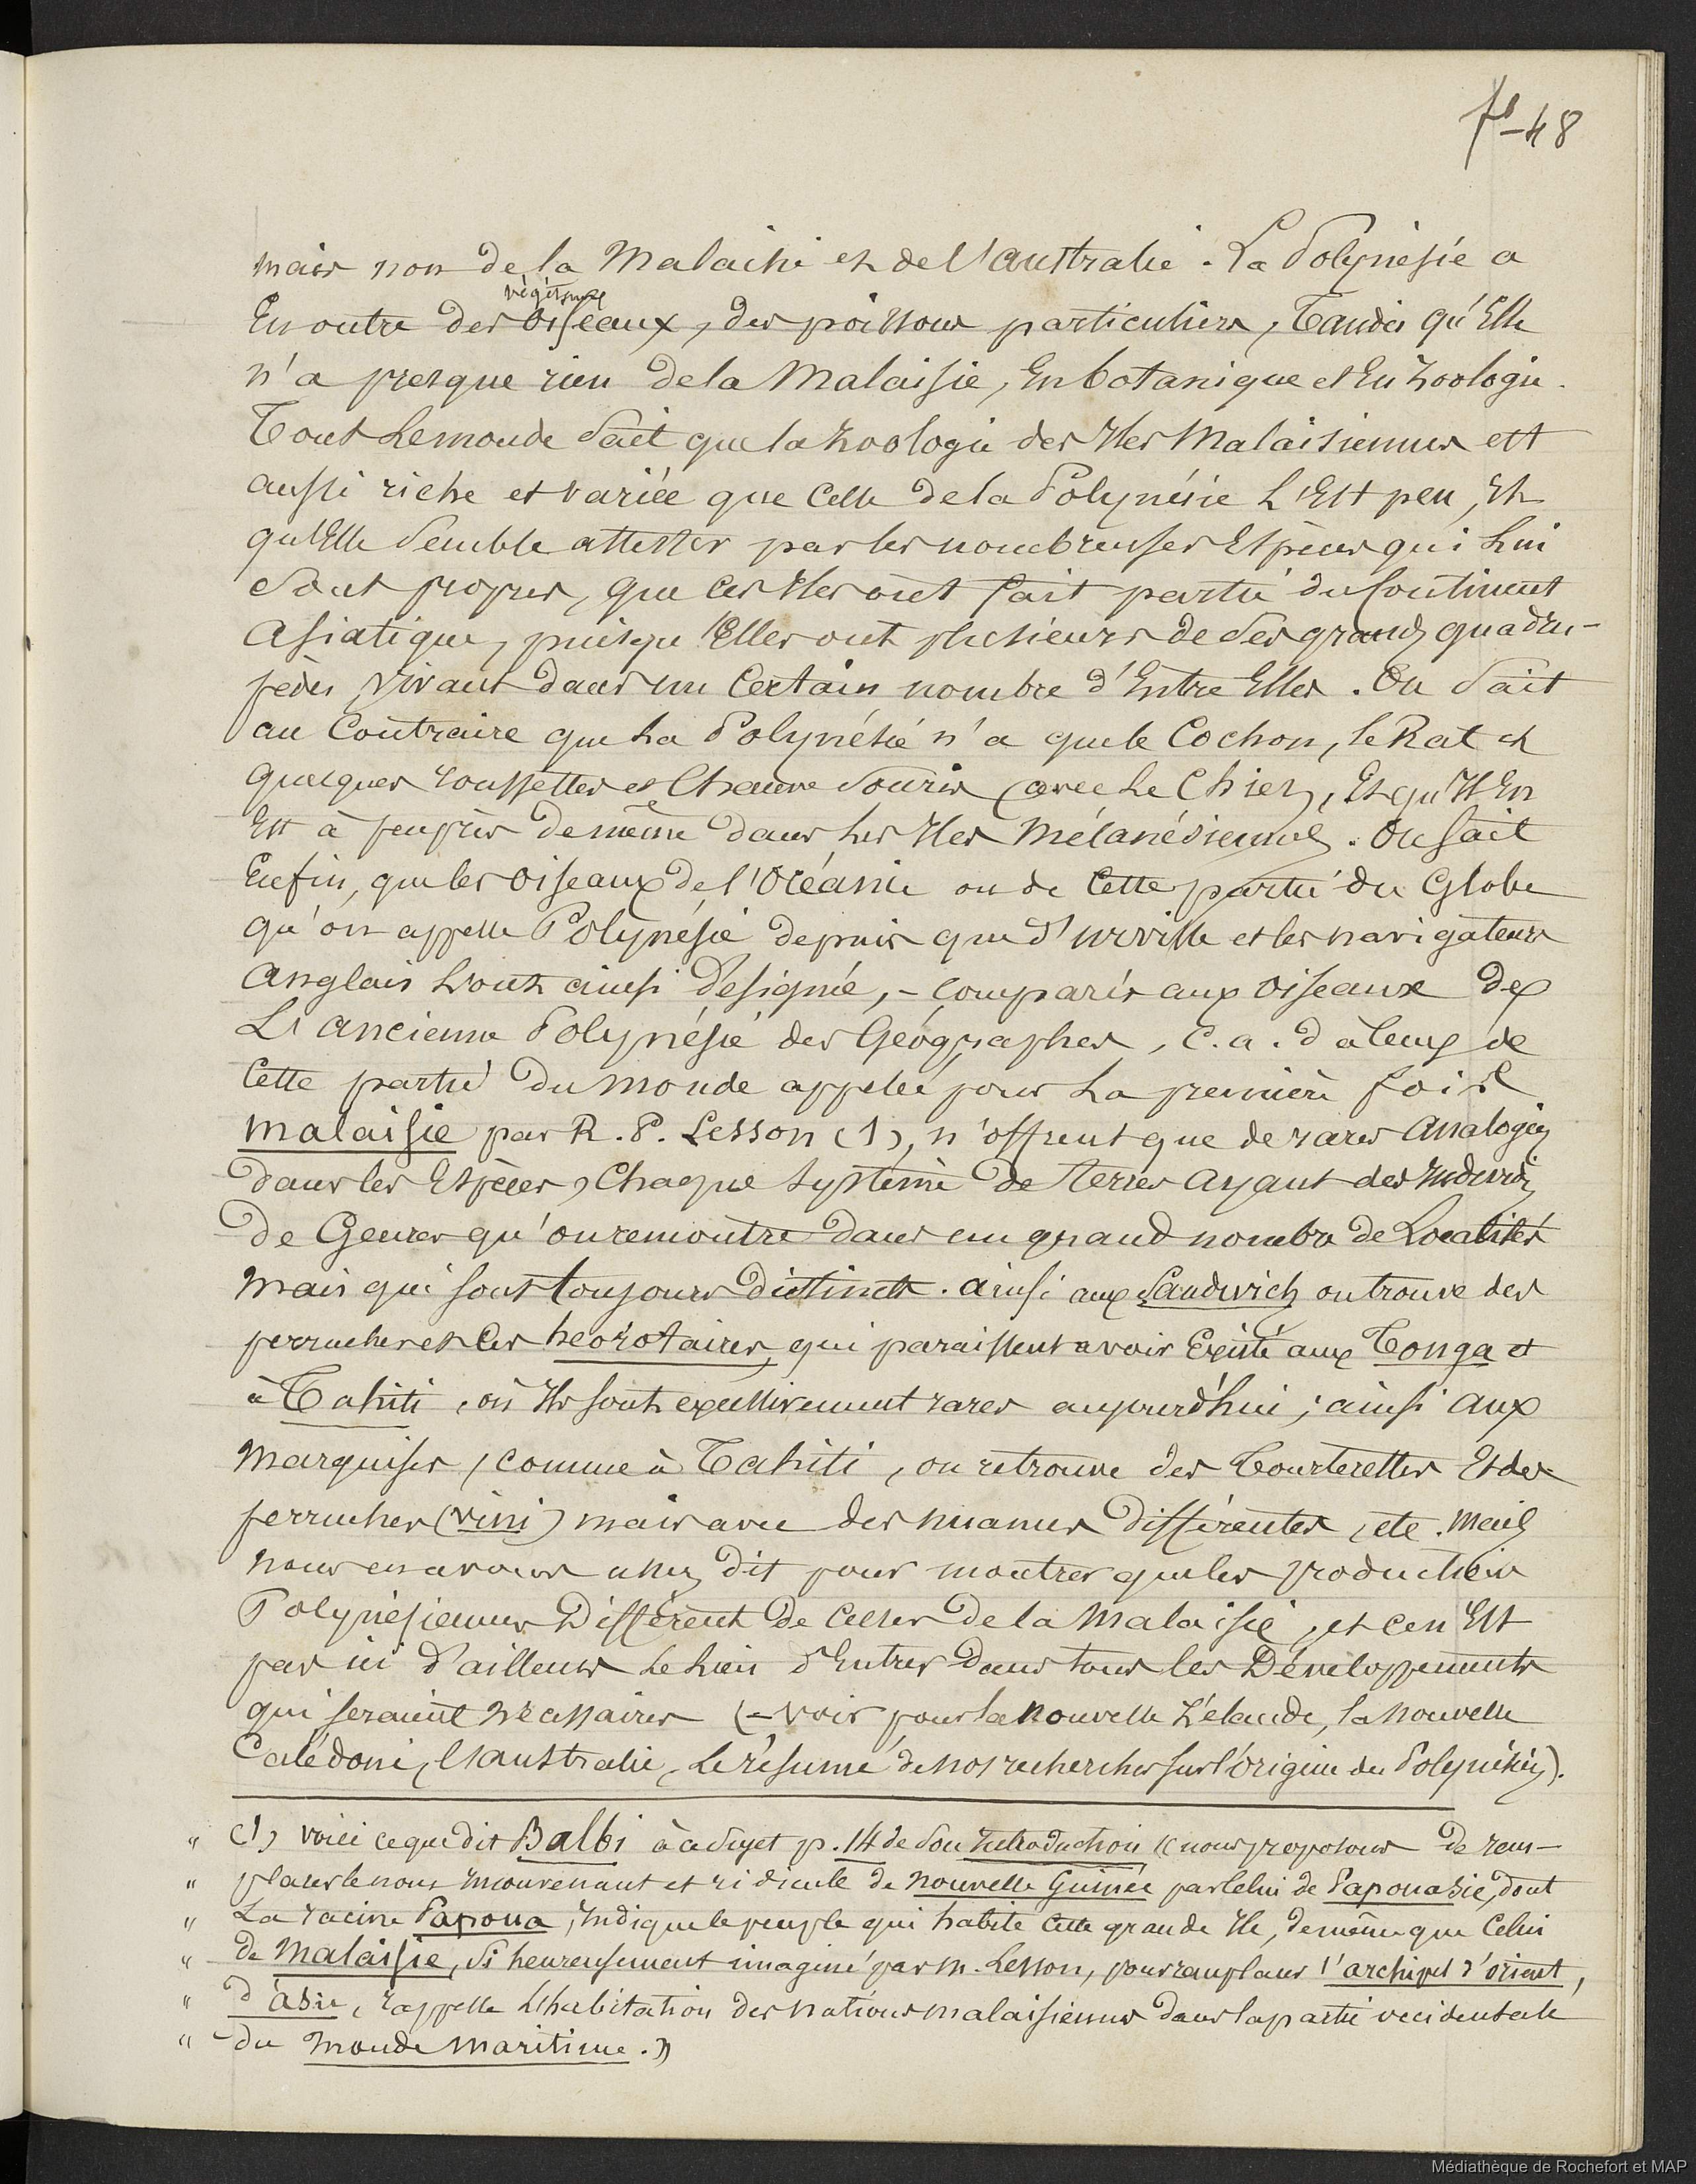 fo-48
mais non de la Malaisie et de l'australie. La Polynésie a
végétaux
En outre des oiseaux, des poissons particuliers, Tandis qu'Elle
n'a presque rien de la Malaisie, En botanique et En Zoologie.
Tout Le monde Sait que la Zoologie des Iles Malaisiennes est
aussi riche et variée que Celle de la Polynésie L'Est peu, Et
qu'Elle Semble attester par les nombreuses Espèces qui Lui
Sont propres, que Ces Iles ont fait partie du Continent
Asiatique, puisqu'Elles ont plusieurs de Ses grands quadru-
pèdes vivant dans un Certain nombre d'Entre Elles. On Sait
au Contraire que La Polynésie n'a que le Cochon, le Rat et
quelques roussettes et Chauve Souris (avec Le Chien, Et qu'Il En
Est à peu près de même dans Les Iles Mélanésiennes. On Sait
Enfin, que les oiseaux de l'Océanie ou de Cette partie du Globe
qu'on appelle Polynésie depuis que d'urville et les navigateurs
Anglais L'ont ainsi Désignée, - comparés aux oiseaux de
L'ancienne Polynésie des Géographes, c.a.d à Ceux de
Cette partie Du monde appelée pour La première fois
malaisie par R. P. Lesson (1), n'offrent que de rares Analogies
dans les Espèces, Chaque Système de terres Ayant des Individus
De Genres qu'on rencontre dans un grand nombre de Localités
Mais qui sont toujours Distincts. ainsi aux Sandwich on trouve des
perruches et les héorotaires, qui paraissent avoir Existé aux Tonga et
à Tahiti, où Ils sont excessivement rares aujourd'hui ; ainsi aux
Marquises, comme à Tahiti, on retrouve des Tourterelles Et des
perruches (vini) mais avec des nuances Différentes, etc. Mais
nous en avons assez dit pour montrer que les productions
Polynésiennes Diffèrent de Celles de la Malaisie, et ce n'Est
pas ici d'ailleurs le Lieu d'Entrer dans tous les Développements
qui seraient nécessaires (- voir pour la nouvelle Zélande, la nouvelle
Calédonie, l'australie, Le résumé de nos recherches sur l'origine des Polynésiens).
" (1) voici ce que dit Balbi à ce Sujet p. 14 de Son Introduction « nous proposons De rem-
" placer le nom inconvenant et ridicule de nouvelle Guinée par Celui de Papouasie, dont
" La racine Papoua, Indique le peuple qui habite Cette grande Ile, de même que Celui
" de Malaisie, Si heureusement imaginé par M. Lesson, pour remplacer l'archipel d'orient,
" d'asie, rappelle L'habitation des nations malaisiennes Dans la partie occidentale
" du monde maritime. »
Médiathèque de Rochefort et MAP